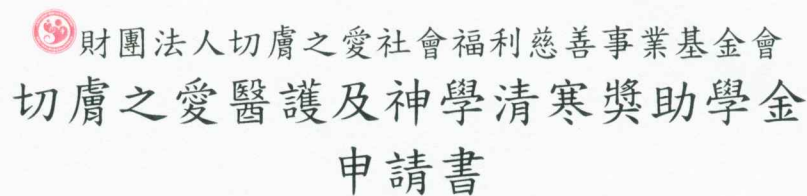 財團法人切膚之愛社會福利慈善事業基金會
切膚之愛醫護及神學清寒獎助學金
申請書